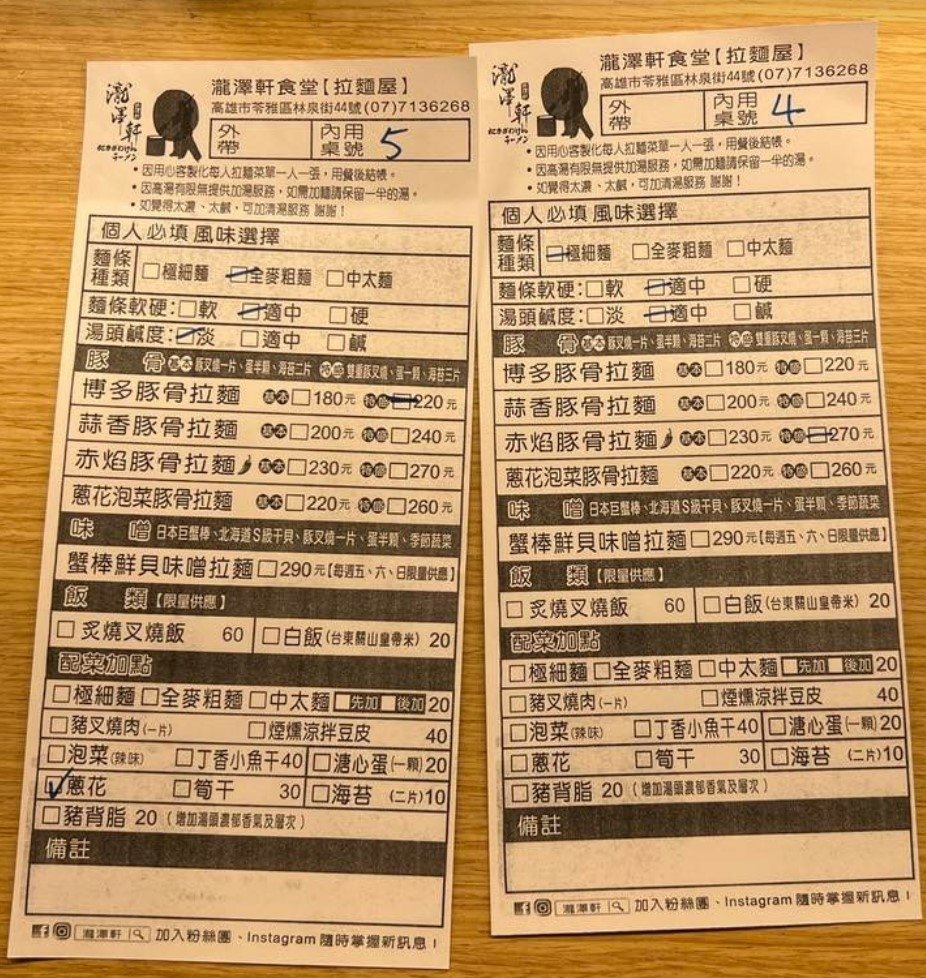 瀧澤軒
たきざわけん
ラーメン
瀧澤軒食堂【拉麵屋】
高雄市苓雅區林泉街44號(07)7136268
外帶 內用桌號 5
•因用心客製化每人拉麵菜單一人一張,用餐後結帳。
•因高湯有限無提供加湯服務,如需加麵請保留一半的湯。
•如覺得太濃、太鹹,可加清湯服務 謝謝!
個人必填風味選擇
麵條種類 □極細麵 □全麥粗麵 □中太麵
麵條軟硬:□軟 □適中 □硬
湯頭鹹度:□淡 □適中 □鹹
豚骨 基本 豚叉燒一片、蛋半顆、海苔二片 特盛 雙重豚叉燒、蛋一顆、海苔三片
博多豚骨拉麵 基本□180元 特盛□220元
蒜香豚骨拉麵 基本□200元 特盛□240元
赤焰豚骨拉麵 基本□230元 特盛□270元
蔥花泡菜豚骨拉麵 基本□220元 特盛□260元
味噌 日本巨蟹棒、北海道S級干貝、豚叉燒一片、蛋半顆、季節蔬菜
蟹棒鮮貝味噌拉麵□290元【每週五、六、日限量供應】
飯類【限量供應】
□炙燒叉燒飯 60 □白飯(台東關山皇帝米) 20
配菜加點
□極細麵□全麥粗麵□中太麵 □先加 □後加 20
□豬叉燒肉(一片) □煙燻涼拌豆皮 40
□泡菜(辣味) □丁香小魚干40 □溏心蛋(一顆)20
☑蔥花 □筍干 30 □海苔 (二片)10
□豬背脂 20(增加湯頭濃郁香氣及層次)
備註
瀧澤軒 加入粉絲團、Instagram 隨時掌握新訊息!
瀧澤軒
たきざわけん
ラーメン
瀧澤軒食堂【拉麵屋】
高雄市苓雅區林泉街44號(07)7136268
外帶 內用桌號 4
•因用心客製化每人拉麵菜單一人一張,用餐後結帳。
•因高湯有限無提供加湯服務,如需加麵請保留一半的湯。
•如覺得太濃、太鹹,可加清湯服務 謝謝!
個人必填風味選擇
麵條種類 □極細麵 □全麥粗麵 □中太麵
麵條軟硬:□軟 □適中 □硬
湯頭鹹度:□淡 □適中 □鹹
豚骨 基本 豚叉燒一片、蛋半顆、海苔二片 特盛 雙重豚叉燒、蛋一顆、海苔三片
博多豚骨拉麵 基本□180元 特盛□220元
蒜香豚骨拉麵 基本□200元 特盛□240元
赤焰豚骨拉麵 基本□230元 特盛□270元
蔥花泡菜豚骨拉麵 基本□220元 特盛□260元
味噌 日本巨蟹棒、北海道S級干貝、豚叉燒一片、蛋半顆、季節蔬菜
蟹棒鮮貝味噌拉麵□290元【每週五、六、日限量供應】
飯類【限量供應】
□炙燒叉燒飯 60 □白飯(台東關山皇帝米) 20
配菜加點
□極細麵□全麥粗麵□中太麵 □先加 □後加 20
□豬叉燒肉(一片) □煙燻涼拌豆皮 40
□泡菜(辣味) □丁香小魚干40 □溏心蛋(一顆)20
□蔥花 □筍干 30 □海苔 (二片)10
□豬背脂 20(增加湯頭濃郁香氣及層次)
備註
瀧澤軒 加入粉絲團、Instagram 隨時掌握新訊息!